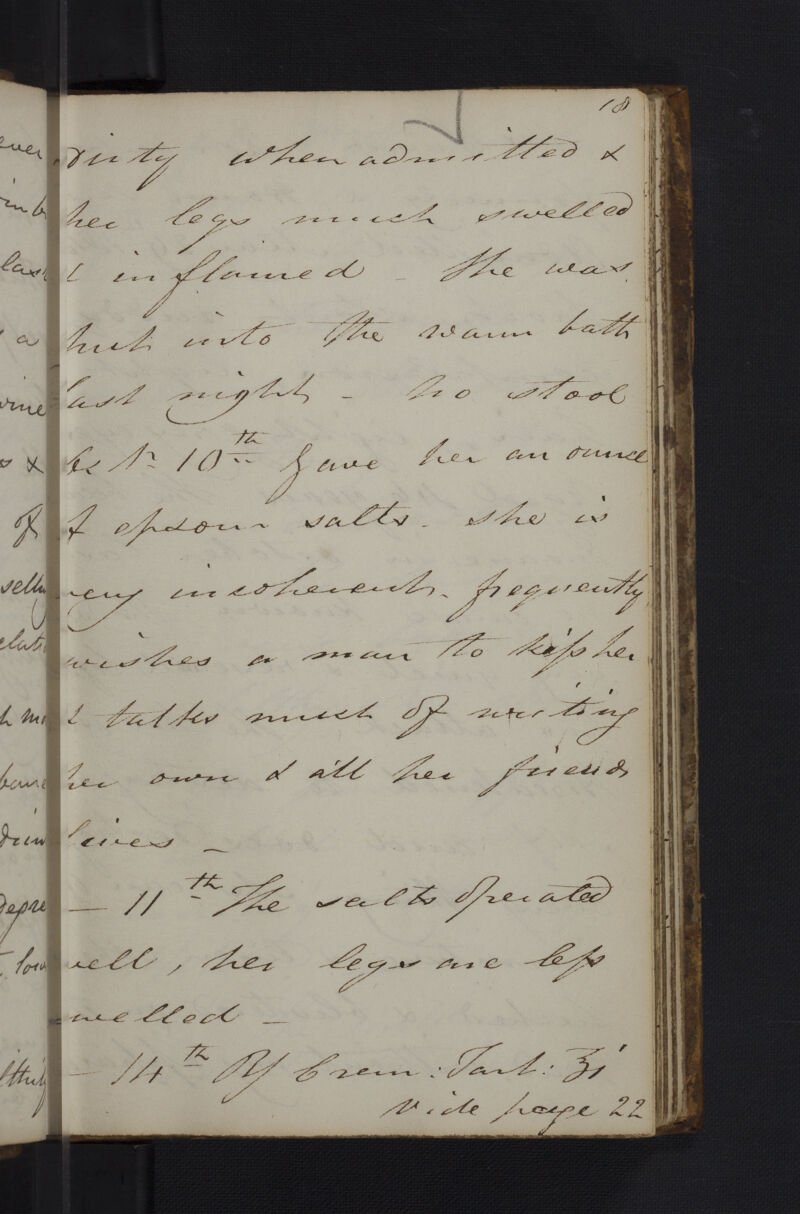 18
dirty when admitted &
her legs much swelled
& inflamed - She was
put into the warm bath
last night - no stool
10th Gave her an ounce
of epsom salts. she is
very incoherent. frequently
wishes a man to kiss her
& talks much of writing
her own & all her friends
lives -
- 11th The salts operated
well, her legs are less
swelled -
- 14th ℞ Crem: Tart: ʒi
Vide page 22